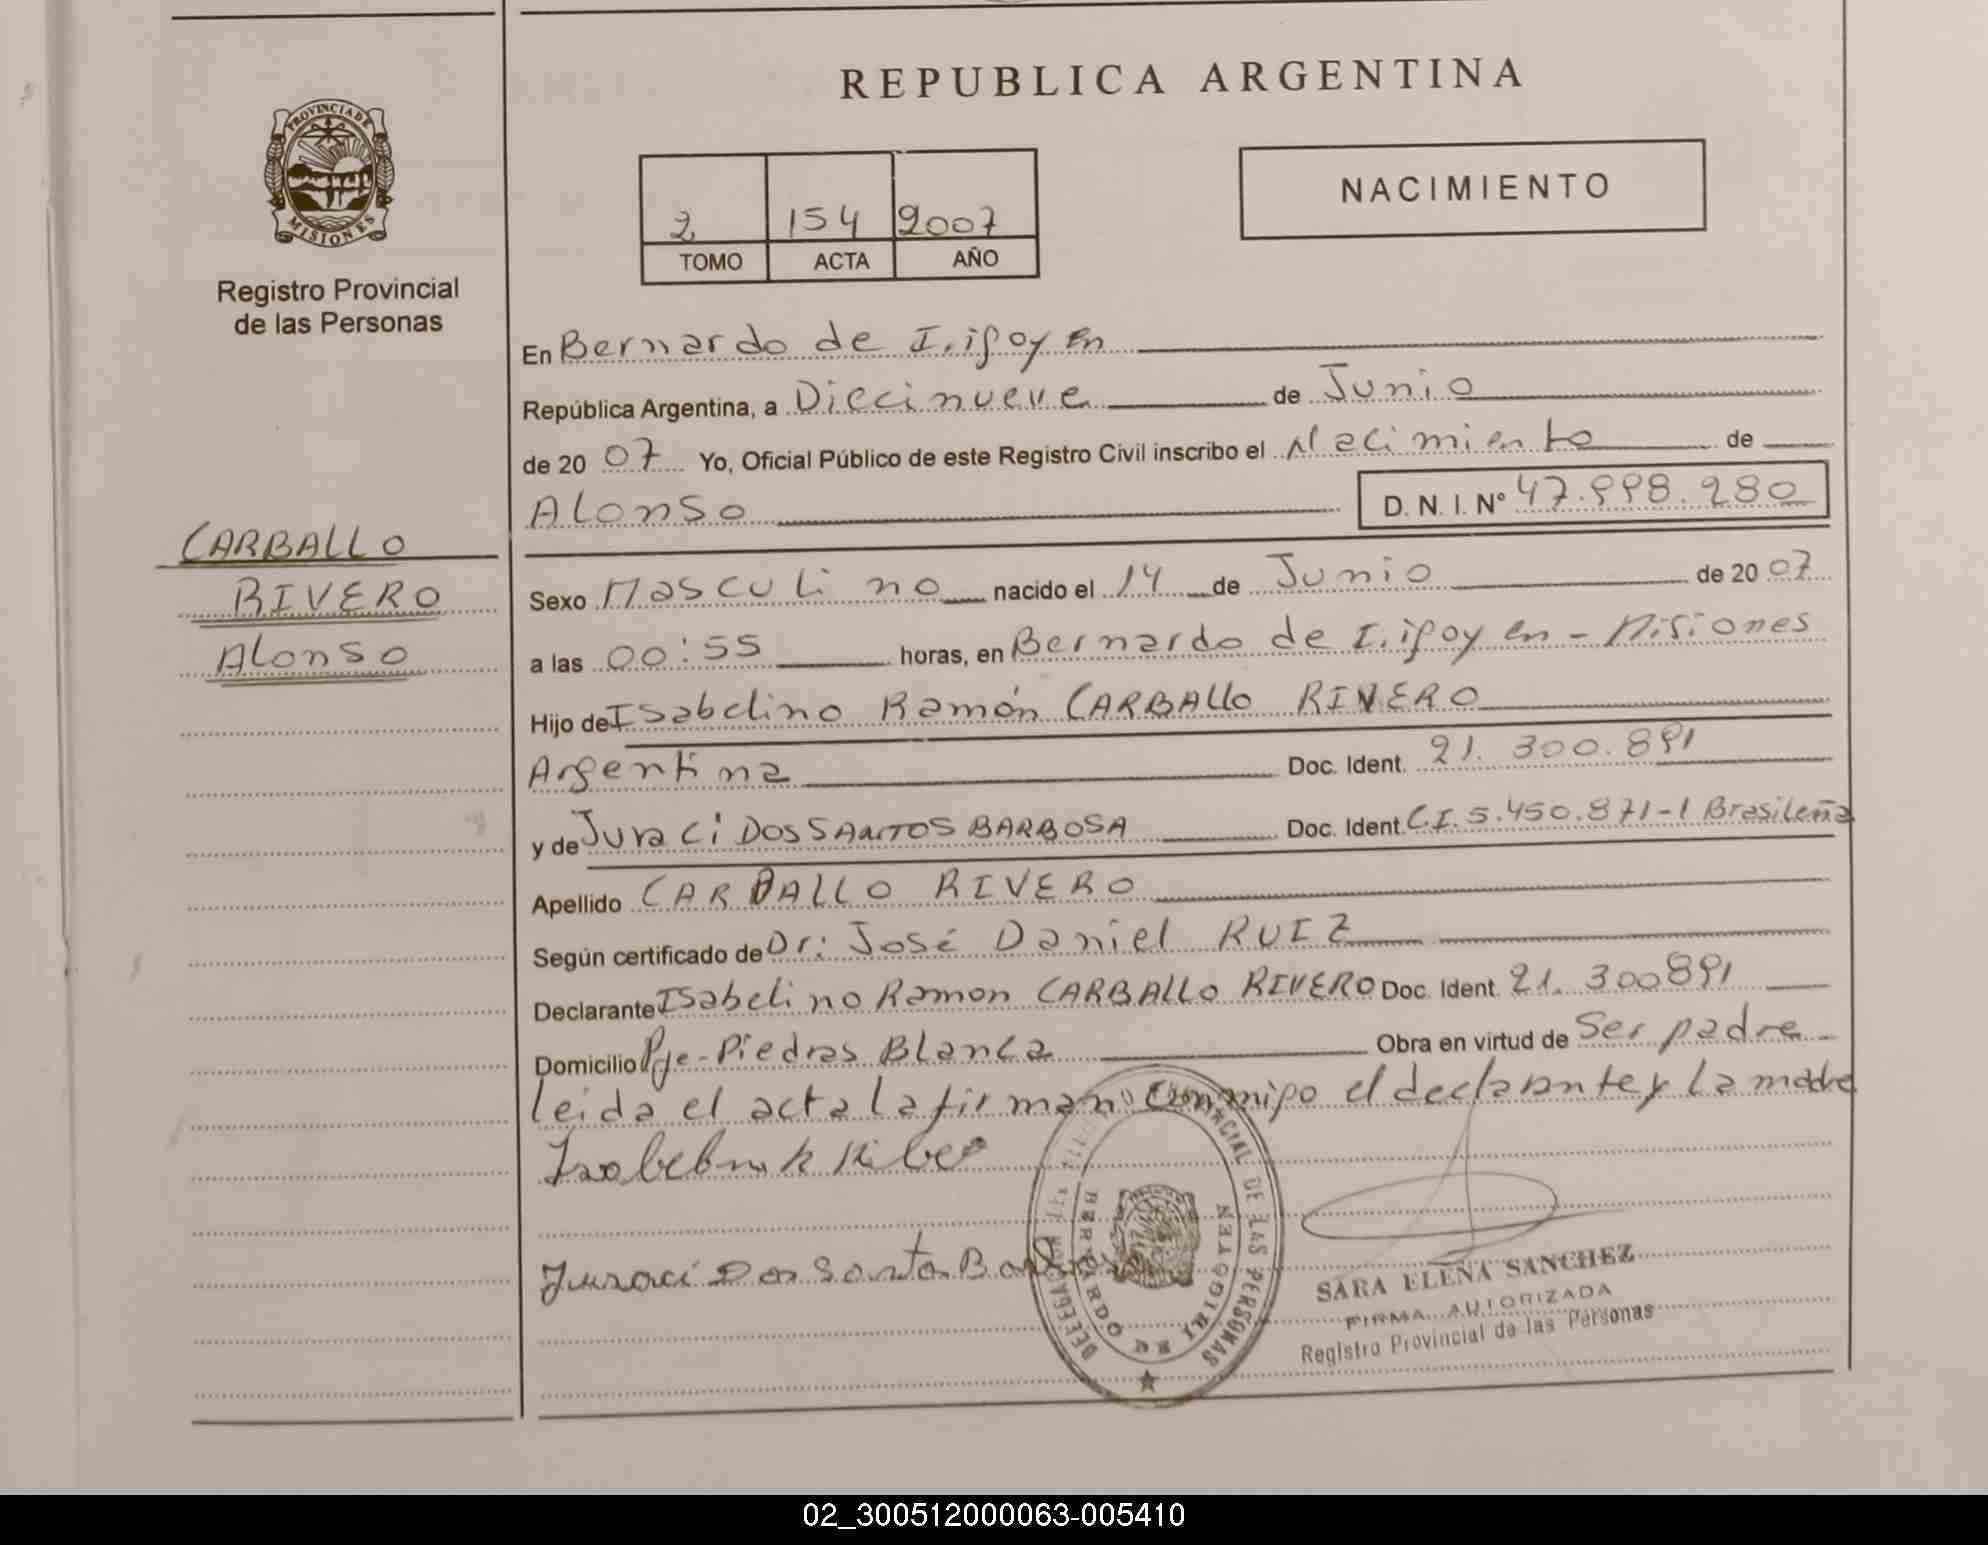 REPUBLICA ARGENTINA
PROVINCIA DE
MISIONES
Registro Provincial
de las Personas
NACIMIENTO
2 154 2007
TOMO ACTA AÑO
En Bernardo de Irigoyen
República Argentina, a Diecinueve de Junio
de 20 07 Yo, Oficial Público de este Registro Civil inscribo el Nacimiento de
Alonso D. N. I. Nº 47.998.280
CARBALLO
RIVERO
Alonso
Sexo Masculino nacido el 14 de Junio de 20 07
a las 00:55 horas, en Bernardo de Irigoyen - Misiones
Hijo de Isabelino Ramón CARBALLO RIVERO
Argentina Doc. Ident. 21.300.891
y de Juraci DOS SANTOS BARBOSA Doc. Ident. C.I. 5.450.871-1 Brasileña
Apellido CARBALLO RIVERO
Según certificado de Dr: José Daniel RUIZ
Declarante Isabelino Ramon CARBALLO RIVERO Doc. Ident. 21.300891
Domicilio Pje - Piedras Blanca Obra en virtud de Ser padre
leida el acta la firman conmigo el declarante y La madre
Juraci Dos Santos
DELEGACION DEL REGISTRO PROVINCIAL DE LAS PERSONAS
BERNARDO DE IRIGOYEN
SARA ELENA SANCHEZ
FIRMA AUTORIZADA
Registro Provincial de las Personas
02_300512000063-005410